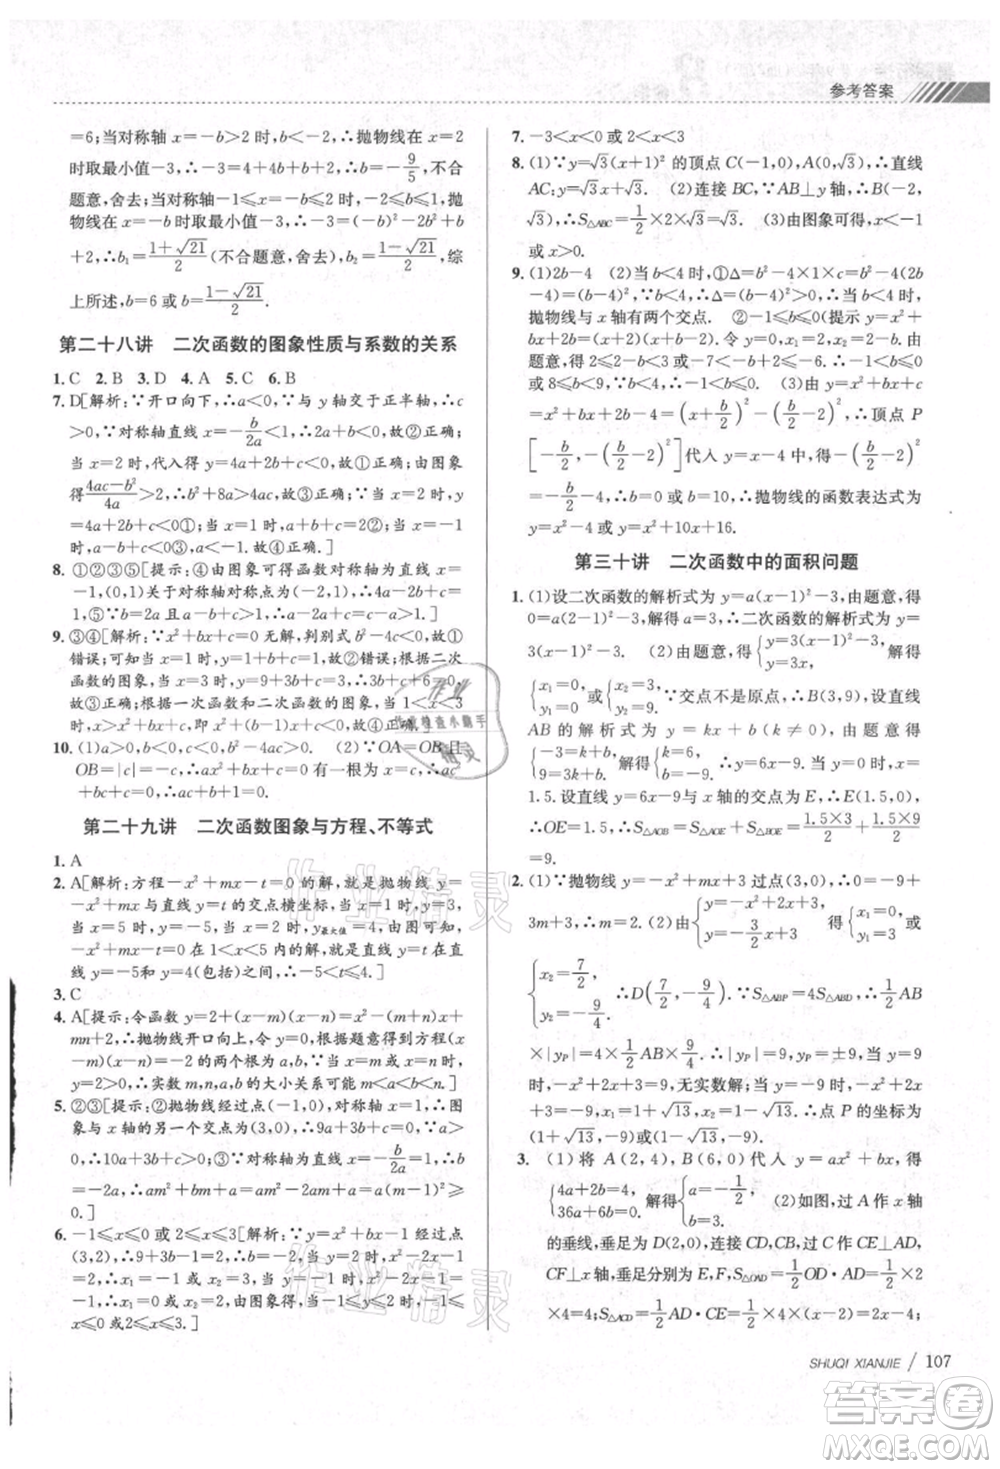 参考答案
=6;当对称轴 x=-b>2 时,b<-2,∴抛物线在 x=2
时取最小值-3,∴-3=4+4b+b+2,∴b=-9/5,不合
题意,舍去;当对称轴-1≤x=-b≤2 时,-2≤b≤1,抛
物线在 x=-b 时取最小值-3,∴-3=(-b)²-2b²+b
+2,∴b₁=(1+√21)/2(不合题意,舍去),b₂=(1-√21)/2,综
上所述,b=6 或 b=(1-√21)/2.
第二十八讲 二次函数的图象性质与系数的关系
1. C 2. B 3. D 4. A 5. C 6. B
7. D[解析:∵开口向下,∴a<0;∵与 y 轴交于正半轴,∴c
>0,∵对称轴直线 x=-b/2a<1,∴2a+b<0,故②正确;
当 x=1 时,代入得 y=a+b+c=2,故①正确;由图象
得(4ac-b²)/4a>2,∴b²+8a>4ac,故④正确;当 x=2 时,y=
4a+2b+c<0①;当 x=1 时,a+b+c=2②;当 x=-1
时,y=a-b+c<0③,∴a<-1.故③正确.]
8. ①②③⑤[提示:④由图象可得函数对称轴为直线 x=
-1,(0,1)关于对称轴对称点为(-2,1),∴4a-2b+c=
1,⑤∵-b/2a=-1,∴b=2a 且 a<0,∴c-a>1.]
9. ③④[解析:∵x²+bx+c=0 无解,判别式<0,故①
错误;当 x=1 时,y=1,∴b+c=0,故②错误;根据二次
函数的图象,当 x=3 时,y=3,∴3b+c=-6,3b+c+6=0,
故③正确;根据一次函数和二次函数图象,当 1<x<3
时,x>x²+bx+c,即 x²+(b-1)x+c<0.故④正确.]
10. (1)a>0,c<0,b²-4ac>0. (2)∵OA=OB,且
OB=|c|=-c,∴ax²+bx+c=0 有一根为 x=c,∴ac
+b+1=0.
第二十九讲 二次函数图象与方程、不等式
1. A
2. A[解析:方程-x²+mx-t=0 的解就是抛物线 y=
-x²+mx 与直线 y=t 的交点横坐标,当 x=1 时,y=3,
当 x=5 时,y=-5,y最大值=4,由图象可知关于 x 的方程
-x²+mx-t=0 在 1<x<5 的范围内有解,直线 y=t 应在
直线 y=-5和y=4(包括)之间,∴-5<t≤4.]
3. C
4. A[提示:令函数 y=2+(x-m)(x-n)=x²-(m+n)x+
mn+2,∴抛物线开口向上,根据题意得方程(x-m)·
(x-n)=3 的两个实数根是 a,b,当 x=m 或 x=n 时,y=
2<3,∴实数 m,n,a,b 的大小关系可能是 a<m<n<b.]
5. ②③[提示:②抛物线经过点(3,0),对称轴为 x=1,图
象与 x 轴的另一个交点为(-1,0),∴c=-3a,∵c>
0,∴a=-c/3<0,故②正确;③∵对称轴为直线 x=-b/2a=
1,∴b=-2a,∵a+b+c=a-2a-3a=-4a>0,∴a+b+c
≠0.]
6. -1≤x≤0 或 2≤x≤3[解析:∵y=x²+bx-1 经过点
(3,2),∴x=3 时,y=2,∴9+3b-1=2,∴b=-2,∴y=
x²-2x-1,∵y=-1 时,x²-2x=0,∴x₁=0,x₂=2,∵y=2
时,∴x₁=-1,x₂=3,由图象得,当-1≤y≤2 时,-1≤
x≤0 或 2≤x≤3.]
7. -3<x<0 或 2<x<3
8. (1)∵y=√3(x+1)² 的顶点 C(-1,0),A(0,√3),∴直线
AC:y=√3x+√3. (2)连接 BC,∵AB⊥y 轴,∴B(-2,
√3),∴S△ABC=1/2×2×√3=√3. (3)由图象可得,x<-1
或x>0.
9. (1)2b-4 (2)根据题意得:①Δ=b²-4(2b-4)=b²-
8b+16=(b-4)²,∵b≠4,∴Δ=(b-4)²>0.∴b≠4 时,
抛物线与 x 轴有两个交点. ②-1≤b≤0(提示 y=x²+
bx+(2b-4)=(x+2)(x-2+b),∴x₁=-2,x₂=2-b.由
题意,得 2≤2-b≤3,解得-1≤b≤0) ③由题意,得 b=0
或 8≤b<9,∵y=x²+bx+2b-4=(x+b/2)²-(b/2-2)²,∴顶点 P
[-b/2,-(b/2-2)²]代入 y=x-4得-b/2-4=
-(b/2-2)²,解得 b=0 或 b=10,∴抛物线的函数表达式为
y=x²-4 或 y=x²+10x+16.
第三十讲 二次函数中的面积问题
1. (1)设二次函数的解析式为 y=a(x-1)²-3,由题意,得
0=a(2-1)²-3,解得 a=3,∴二次函数的解析式为 y=
3(x-1)²-3. (2)由题意,得{y=3(x-1)²-3, y=3x, 解得
{x₁=0, y₁=0 或{x₂=3, y₂=9, ∵交点不是原点,∴B(3,9),设直线
AB 的解析式为 y=kx+b(k≠0),由题意得
{-3=k+b, 9=3k+b, 解得{k=6, b=-9, ∴y=6x-9,当 y=0 时,x=
1.5.设直线 y=6x-9 与 x 轴的交点为 E,则 E(1.5,0),
∴OE=1.5,∴S△AOB=S△AOE+S△BOE=(1.5×3)/2+(1.5×9)/2
=9.
2. (1)∵抛物线 y=-x²+mx+3 过点(3,0),∴0=-9+
3m+3,∴m=2. (2)由{y=-x²+2x+3, y=-3/2x+3, 得{x₁=0, y₁=3,
{x₂=7/2, y₂=-9/4, ∴D(7/2,-9/4),∵S△ABP=4S△ABD,∴1/2AB
×|yP|=4×1/2AB×9/4,∴|yP|=9,yP=±9,当 y=9
时,-x²+2x+3=9,无实数解,当 y=-9 时,-x²+2x+
3=-9,x₁=1+√13,x₂=1-√13,∴点 P 的坐标为
(1+√13,-9)或(1-√13,-9).
3. (1)将 A(2,4),B(6,0)代入 y=ax²+bx,得
{4a+2b=4, 36a+6b=0, 解得{a=-1/2, b=3. (2)如图,过 A 作 x 轴
的垂线,垂足为 D(2,0),连接 CD,过 C 作 CE⊥AD,
CF⊥x 轴,垂足分别为 E,F,S△OAD=1/2OD·AD=1/2×2
×4=4;S△ACD=1/2AD·CE=1/2×4×(x-2)=2x-4,
SHUQI XIANJIE / 107
作业精灵
作业检查小助手
精灵
作业精灵
答案圈
MXQE.COM